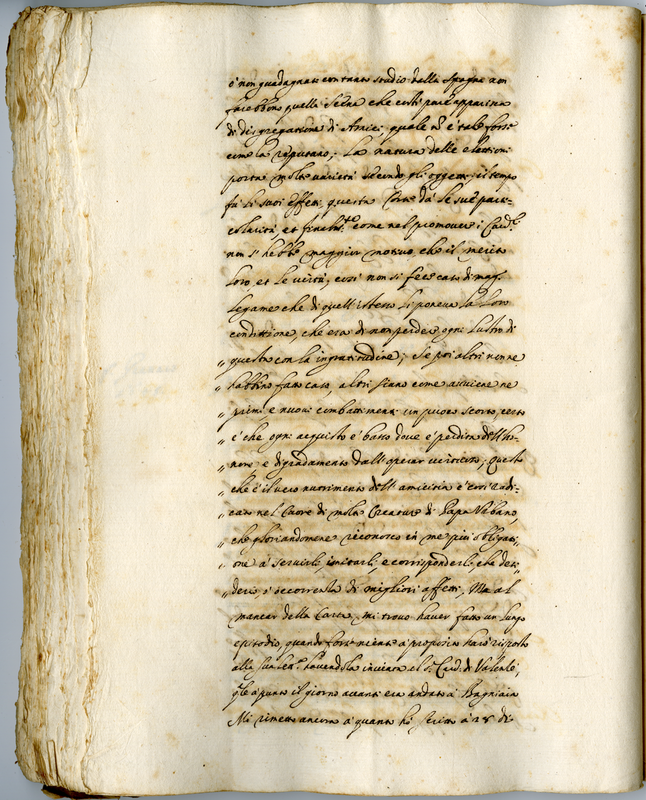 ò non guadagnate con tanto studio dalla Spagna non
farebbono quella scena che costì pare apparisca
di disgregatione di Amici quale nō è tale forse
come la reputano; La natura delle elettioni
porta molte varietà secondo gli oggetti; il tempo
fà li suoi effetti, questa Corte dà le sue parti-
colarità, et finalmte come nel promovere i Cardli
non s'hebbe maggior motivo, che il merito
loro, et le virtù, così non si fece caso di magr
legame che di quell'istesso li poneva la loro
condittione, che era di non perdere ogni lustro di
„ questa con la ingratitudine; Se poi altri non ne
„ habbino fatto caso, altri siano come avviene ne
„ primi, e nuovi combattimenti un puoco scorti, certo
„ è che ogni acquisto è basso dove è perdita dell'ho-
„ nore e digradamento dall'operar virtuoso; Questo
„ che è il vero nutrimento dell'amicitia è così radi-
„ cato nel Cuore di molte Creature di Papa Urbano,
„ che gloriandomene riconosco in me più obligati-
„ one à servirli, imitarli, e corrisponderli, che desi-
„ derio, ò occorrenza di migliori affetti, Ma al
mancar della Carta mi trovo haver fatto un lungo
episodio, quando forse niente à proposito havrò risposto
alla sua lettra havendola inviata el Sr Card. di Valenzè,
qle à punto il giorno avanti era andato à Bagniaia
Mi rimetto ancora à quanto hò scritto à 28 di